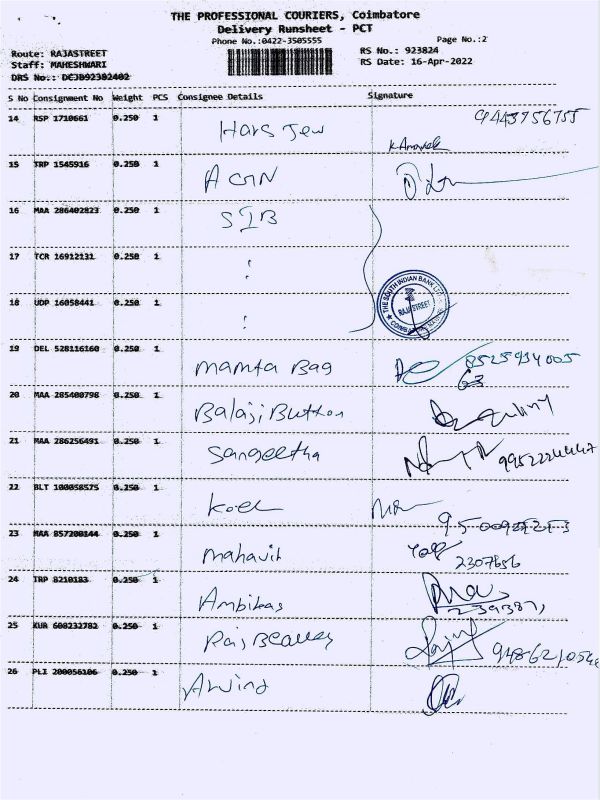 THE PROFESSIONAL COURIERS, Coimbatore
Delivery Runsheet - PCT
Phone No.:0422-3505555
Page No.:2
Route: RAJASTREET
RS No.: 923824
Staff: MAHESHWARI
RS Date: 16-Apr-2022
DRS No.: DCJB92382402
S No Consignment No Weight PCS Consignee Details Signature
14 RSP 1710661 0.250 1 Hars Jew 9443756755
15 TRP 1545916 0.250 1 A GN
16 MAA 286402823 0.250 1 SIB
17 TCR 16912131 0.250 1
THE SOUTH INDIAN BANK LTD.
RAJA STREET
18 UDP 16058441 0.250 1
19 DEL 528116160 0.250 1 Mamta Bag
63
20 MAA 285400798 0.250 1 Balaji Button
21 MAA 286256491 0.250 1 Sangeetha
22 BLT 100058575 0.250 1
23 MAA 857200144 0.250 1 Mahavir
2307656
24 TRP 8210183 0.250 1 Ambikas
25 KUR 608232782 0.250 1
26 PLI 200056106 0.250 1 Arvind